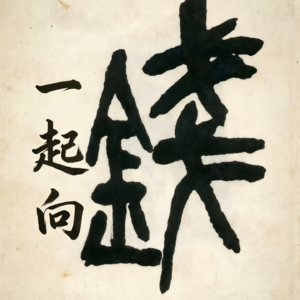 一起向
錢